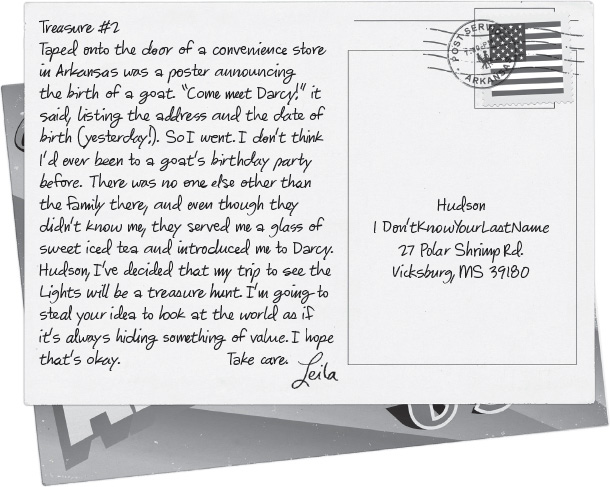 Treasure #2
Taped onto the door of a convenience store
in Arkansas was a poster announcing
the birth of a goat. "Come meet Darcy!" it
said, listing the address and the date of
birth (yesterday!). So I went. I don't think
I'd ever been to a goat's birthday party
before. There was no one else other than
the family there, and even though they
didn't know me, they served me a glass of
sweet iced tea and introduced me to Darcy.
Hudson, I've decided that my trip to see the
Lights will be a treasure hunt. I'm going to
steal your idea to look at the world as if
it's always hiding something of value. I hope
that's okay. Take care.
Leila
POST SERVICE
ARKANSAS
Hudson
I Don'tKnowYourLastName
27 Polar Shrimp Rd.
Vicksburg, MS 39180